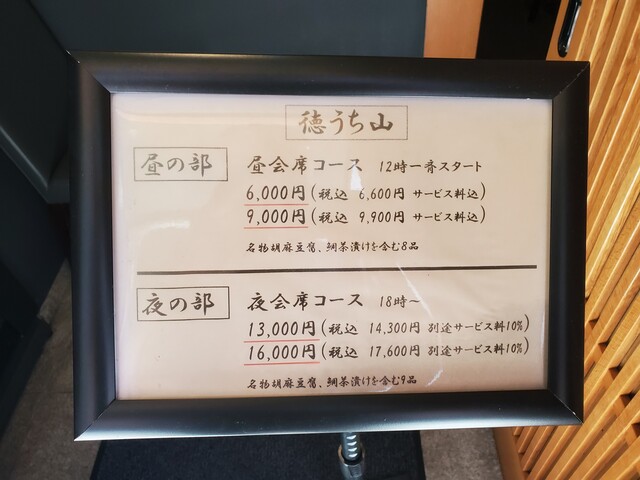 徳うち山
昼の部
昼会席コース 12時一斉スタート
6,000円(税込 6,600円 サービス料込)
9,000円(税込 9,900円 サービス料込)
名物胡麻豆腐、鯛茶漬けを含む8品
夜の部
夜会席コース 18時~
13,000円(税込 14,300円 別途サービス料10%)
16,000円(税込 17,600円 別途サービス料10%)
名物胡麻豆腐、鯛茶漬けを含む9品